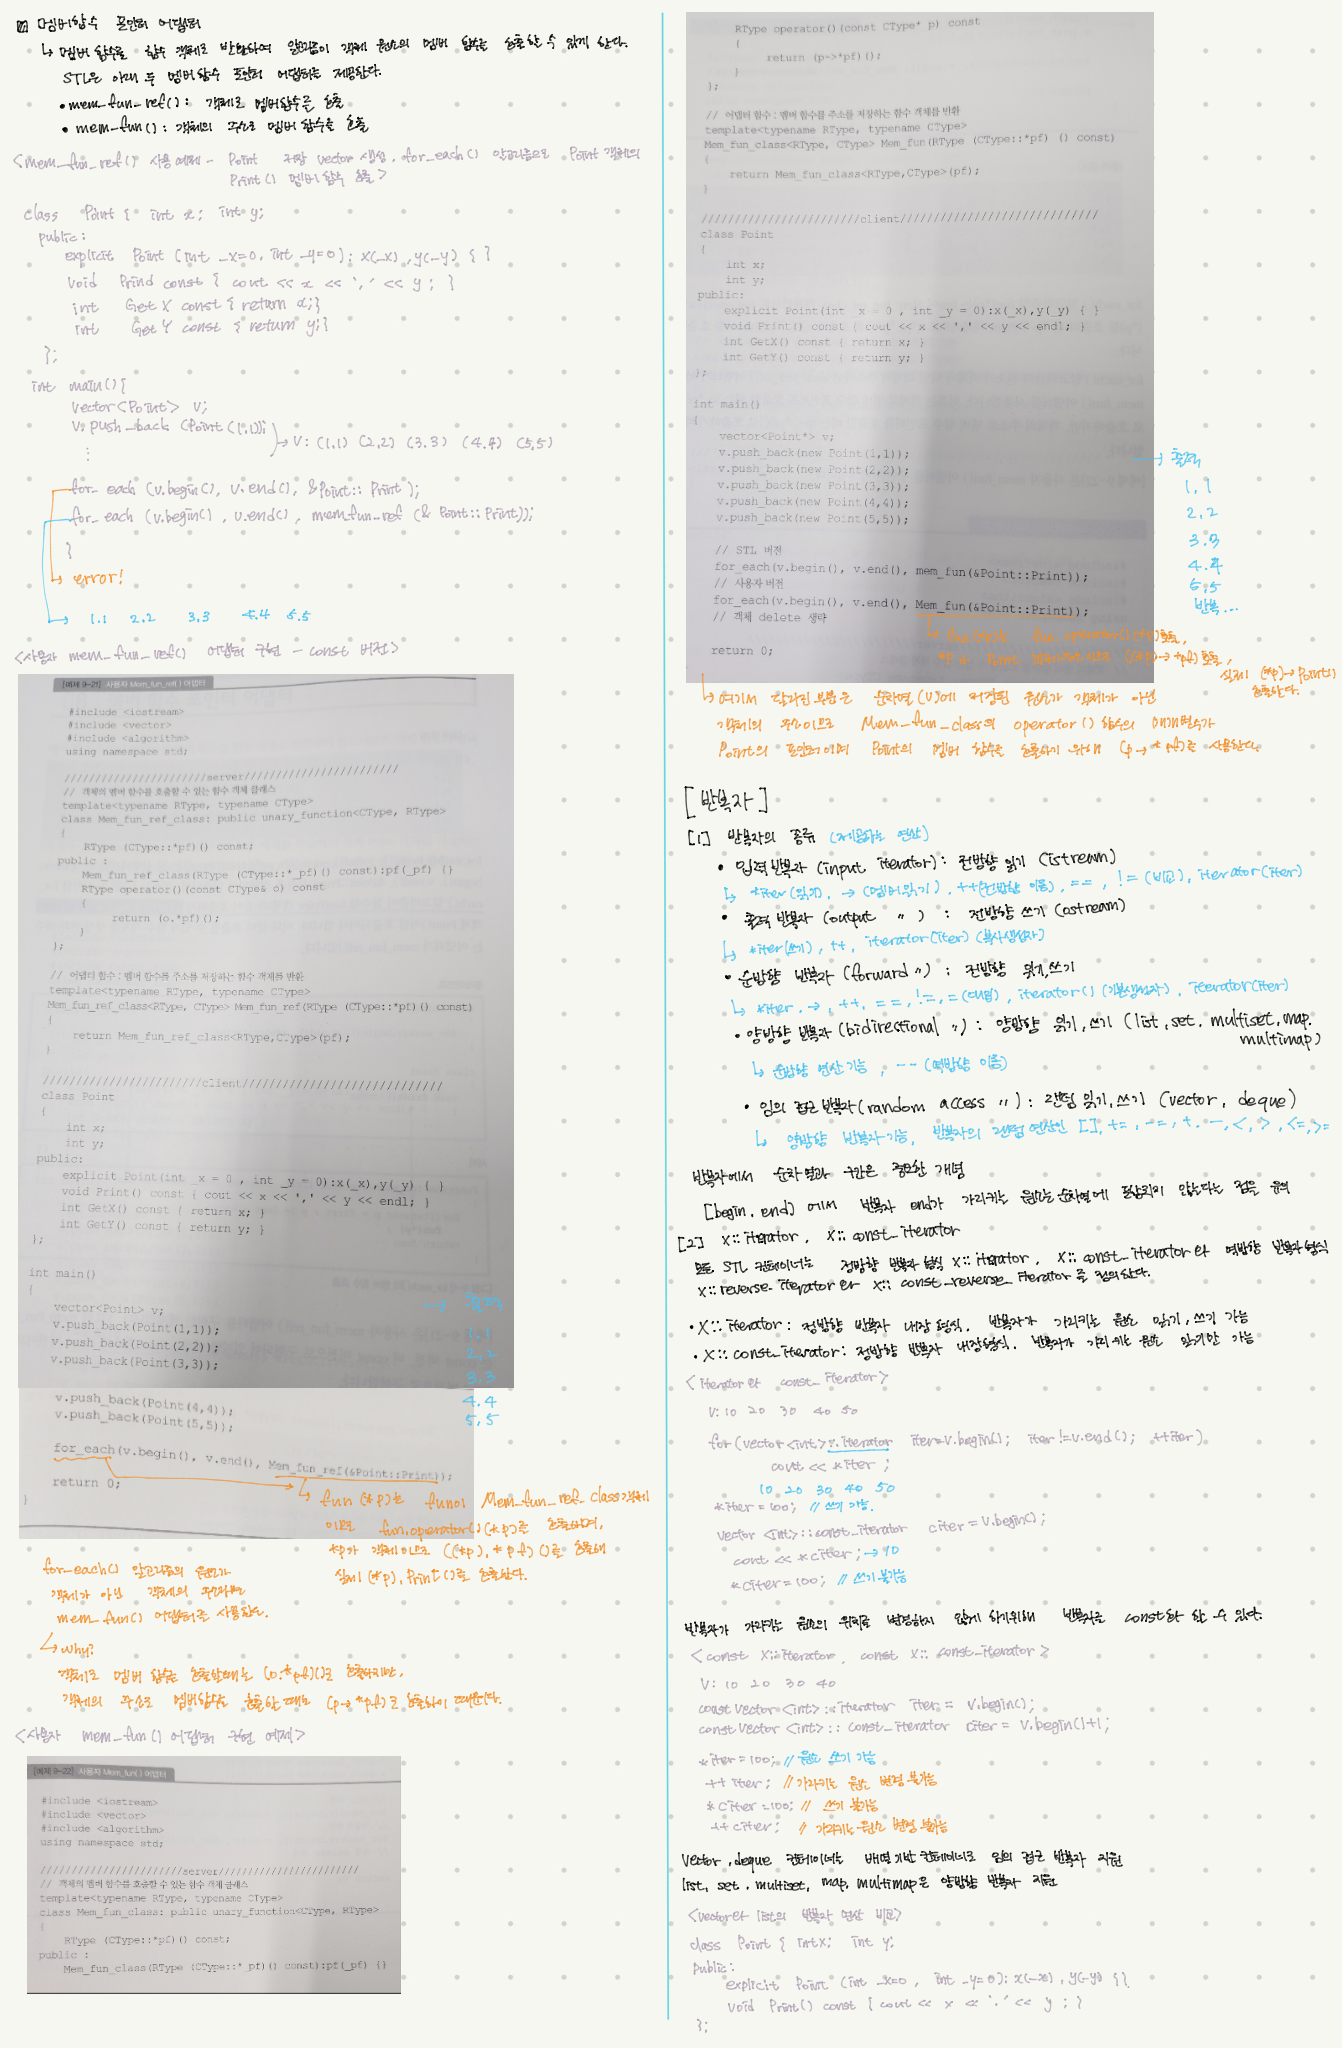 멤버함수 포인터 어댑터
↳ 멤버 함수를 함수 객체로 변환하여 알고리즘이 객체 원소의 멤버 함수를 호출할 수 있게 한다.
STL은 아래 두 멤버함수 포인터 어댑터를 제공한다.
• mem_fun_ref() : 객체로 멤버함수를 호출
• mem_fun() : 객체의 주소로 멤버 함수를 호출
<mem_fun_ref() 사용 예제 - Point 저장 vector 생성, for_each() 알고리즘으로 Point 객체의
Print() 멤버 함수 호출>
class Point { int x; int y;
public:
explicit Point (int _x=0, int _y=0): x(_x), y(_y) { }
void Print const { cout << x << ',' << y; }
int Get X const { return x; }
int Get Y const { return y; }
};
int main(){
vector<Point> v;
v.push_back (Point(1,1));
→ v: (1,1) (2,2) (3,3) (4,4) (5,5)
⋮
for_each (v.begin(), v.end(), &Point::Print);
for_each (v.begin(), v.end(), mem_fun_ref (& Point::Print));
}
↳ error!
→ 1.1 2.2 3.3 4.4 5.5
<사용자 mem_fun_ref() 어댑터 구현 - const 버전>
[예제 9-21] 사용자 Mem_fun_ref( ) 어댑터
#include <iostream>
#include <vector>
#include <algorithm>
using namespace std;
////////////////////////server//////////////////////////
// 객체의 멤버 함수를 호출할 수 있는 함수 객체 클래스
template<typename RType, typename CType>
class Mem_fun_ref_class: public unary_function<CType, RType>
{
RType (CType::*pf)() const;
public :
Mem_fun_ref_class(RType (CType::*_pf)() const):pf(_pf) {}
RType operator()(const CType& o) const
{
return (o.*pf)();
}
};
// 어댑터 함수 : 멤버 함수를 주소를 저장하는 함수 객체를 반환
template<typename RType, typename CType>
Mem_fun_ref_class<RType, CType> Mem_fun_ref(RType (CType::*pf)() const)
{
return Mem_fun_ref_class<RType,CType>(pf);
}
////////////////////////client//////////////////////////////
class Point
{
int x;
int y;
public:
explicit Point(int _x = 0 , int _y = 0):x(_x),y(_y) { }
void Print() const { cout << x << ',' << y << endl; }
int GetX() const { return x; }
int GetY() const { return y; }
};
int main()
{
vector<Point> v;
v.push_back(Point(1,1));
v.push_back(Point(2,2));
v.push_back(Point(3,3));
→ 출력
1,1
2,2
3.3
4.4
5,5
v.push_back(Point(4,4));
v.push_back(Point(5,5));
for_each(v.begin(), v.end(), Mem_fun_ref(&Point::Print));
return 0;
}
↳ fun(*p)는 fun이 Mem_fun_ref_class객체
이므로 fun.operator()(*p)를 호출하며,
*p가 객체이므로 ((*p).*pf)()를 호출해
실제 (*p).Print()를 호출한다.
for_each() 알고리즘의 원소가
객체가 아닌 객체의 주소라면
mem_fun() 어댑터를 사용한다.
↳ why?
객체로 멤버 함수를 호출할때는 (o.*pf)()로 호출하지만,
객체의 주소로 멤버함수를 호출할 때는 (p->*pf)로 호출하기 때문이다.
<사용자 mem_fun() 어댑터 구현 예제>
[예제 9-22] 사용자 Mem_fun( ) 어댑터
#include <iostream>
#include <vector>
#include <algorithm>
using namespace std;
////////////////////////server//////////////////////////
// 객체의 멤버 함수를 호출할 수 있는 함수 객체 클래스
template<typename RType, typename CType>
class Mem_fun_class: public unary_function<CType, RType>
{
RType (CType::*pf)() const;
public :
Mem_fun_class(RType (CType::*_pf)() const):pf(_pf) {}
RType operator()(const CType* p) const
{
return (p->*pf)();
}
};
// 어댑터 함수 : 멤버 함수를 주소를 저장하는 함수 객체를 반환
template<typename RType, typename CType>
Mem_fun_class<RType, CType> Mem_fun(RType (CType::*pf) () const)
{
return Mem_fun_class<RType,CType>(pf);
}
////////////////////////client//////////////////////////////
class Point
{
int x;
int y;
public:
explicit Point(int _x = 0 , int _y = 0):x(_x),y(_y) { }
void Print() const { cout << x << ',' << y << endl; }
int GetX() const { return x; }
int GetY() const { return y; }
};
int main()
{
vector<Point*> v;
v.push_back(new Point(1,1));
v.push_back(new Point(2,2));
v.push_back(new Point(3,3));
v.push_back(new Point(4,4));
v.push_back(new Point(5,5));
→ 출력
1,1
2,2
3.3
4.4
5,5
반복...
// STL 버전
for_each(v.begin(), v.end(), mem_fun(&Point::Print));
// 사용자 버전
for_each(v.begin(), v.end(), Mem_fun(&Point::Print));
// 객체 delete 생략
return 0;
실제 (*p)->Print()
호출한다.
↳ 여기서 달라진 부분은 순차열(v)에 저장된 원소가 객체가 아닌
객체의 주소이므로 Mem_fun_class의 operator() 함수의 매개변수가
Point의 포인터이며 Point의 멤버 함수를 호출하기 위해 (p->*pf)를 사용한다.
[반복자]
[1] 반복자의 종류 (제공하는 연산)
• 입력 반복자 (input iterator) : 전방향 읽기 (istream)
↳ *iter(읽기), → (멤버읽기), ++(전방향 이동), ==, != (비교), iterator(iter)
• 출력 반복자 (output 〃) : 전방향 쓰기 (ostream)
↳ *iter(쓰기), ++, iterator(iter) (복사생성자)
• 순방향 반복자 (forward 〃) : 전방향 읽기,쓰기
↳ *iter, →, ++, ==, !=, =(대입), iterator() (기본생성자), iterator(iter)
• 양방향 반복자 (bidirectional 〃) : 양방향 읽기,쓰기 (list, set, multiset, map,
multimap)
↳ 순방향 연산 기능, -- (역방향 이동)
• 임의 접근 반복자(random access 〃) : 랜덤 읽기,쓰기 (vector, deque)
↳ 양방향 반복자 기능, 반복자의 랜덤 연산인 [], +=, -=, +, -, <, >, <=, >=
반복자에서 순차열과 구간은 중요한 개념
[begin, end) 에서 반복자 end가 가리키는 원소는 순차열에 포함되지 않는다는 점을 유의
[2] X::iterator, X::const_iterator
모든 STL 컨테이너는 정방향 반복자 형식 X::iterator, X::const_iterator와 역방향 반복자 형식
X::reverse_iterator와 X::const_reverse_iterator를 정의한다.
• X::iterator : 정방향 반복자 내장 형식. 반복자가 가리키는 원소 읽기,쓰기 가능
• X::const_iterator : 정방향 반복자 내장형식. 반복자가 가리키는 원소 읽기만 가능
<iterator와 const_iterator>
V: 10 20 30 40 50
for(vector<int>::iterator iter=v.begin(); iter!=v.end(); ++iter)
cout << *iter;
10 20 30 40 50
*iter = 100; // 쓰기 가능.
vector <int>::const_iterator citer = v.begin();
cout << *citer; → 10
*citer=100; // 쓰기 불가능
반복자가 가리키는 원소의 위치를 변경하지 않게 하기위해 반복자를 const화 할 수 있다.
<const X::iterator, const X::const_iterator>
V: 10 20 30 40
const vector <int>::iterator iter = v.begin();
const vector <int>::const_iterator citer = v.begin()+1;
*iter = 100; // 원소 쓰기 가능
++iter; // 가리키는 원소 변경 불가능
*citer =100; // 쓰기 불가능
++citer; // 가리키는 원소 변경 불가능
Vector, deque 컨테이너는 배열 기반 컨테이너로 임의 접근 반복자 지원
list, set, multiset, map, multimap은 양방향 반복자 지원
<vector와 list의 반복자 연산 비교>
class Point { int x; int y;
public:
explicit Point (int _x=0, int _y=0): x(_x), y(_y) {}
void Print() const { cout << x << ',' << y; }
};